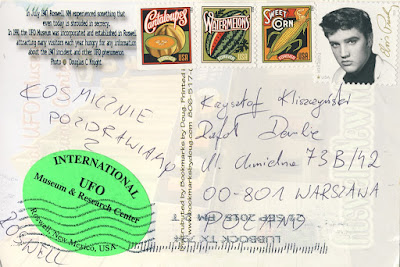 In July 1947 Roswell, NM experienced something that
even today is shrouded in secrecy.
In 1991, the UFO Museum was incorporated and established in Roswell,
attracting many visitors each year hungry for any information
about the 1947 incident, and other UFO phenomenon.
Photo © Douglas C. Knight
Cantaloupes
USA
WATERMELONS
USA
SWEET CORN
USA
KOSMICZNIE
POZDRAWIAMY
Z
ROSWELL
INTERNATIONAL
UFO
Museum & Research Center
Roswell, New Mexico, USA
Bookmarks by Doug. Printed
www.bookmarksbydoug.com 800-517
Krzysztof Kliszczyński
Rafał
Ul. Chmielna 73B/42
00-801 WARSZAWA
POLAND
LUBBOCK TX
SEP 2015 PM